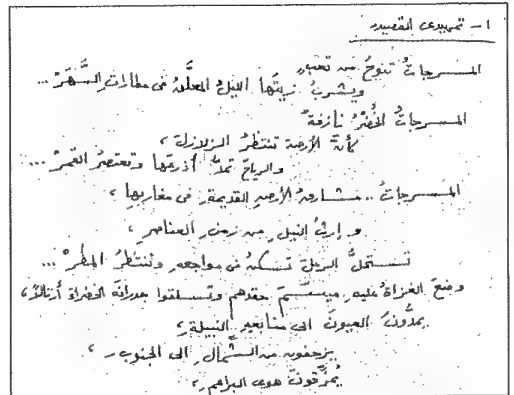 ١ - تمهيدى القصيد
المسرجاتُ تنوحُ من تعبٍ
ويشربُ زيتَها الليلُ المعلّقُ فى مطاراتِ السَّهَرْ ...
المسرجاتُ الخُضْرُ نازفةٌ
كأنّ الأرضَ تنتظرُ الزلازلَ ،
والرياحَ تمدُّ أذرعَها وتعتصرُ القمرْ ...
المسرجاتُ .. مشارفُ الأرضِ القديمةِ فى مغاربِها ،
وإرثُ النيلِ من زمنِ العناصرِ ،
الرملَ تسكنُ فى مواجعهِ وتنتظرُ المطرْ ...
وضعَ الغزاةُ عليهِ ميسمَ حقدِهم وتسلقوا جدرانَه الخضراءَ أرتالاً ،
يمدُّونَ العيونَ الى منابعهِ النبيلةِ ،
يزحفون من الشّمالِ الى الجنوبِ ،
يُمزّقونَ هوى البراعمِ ،